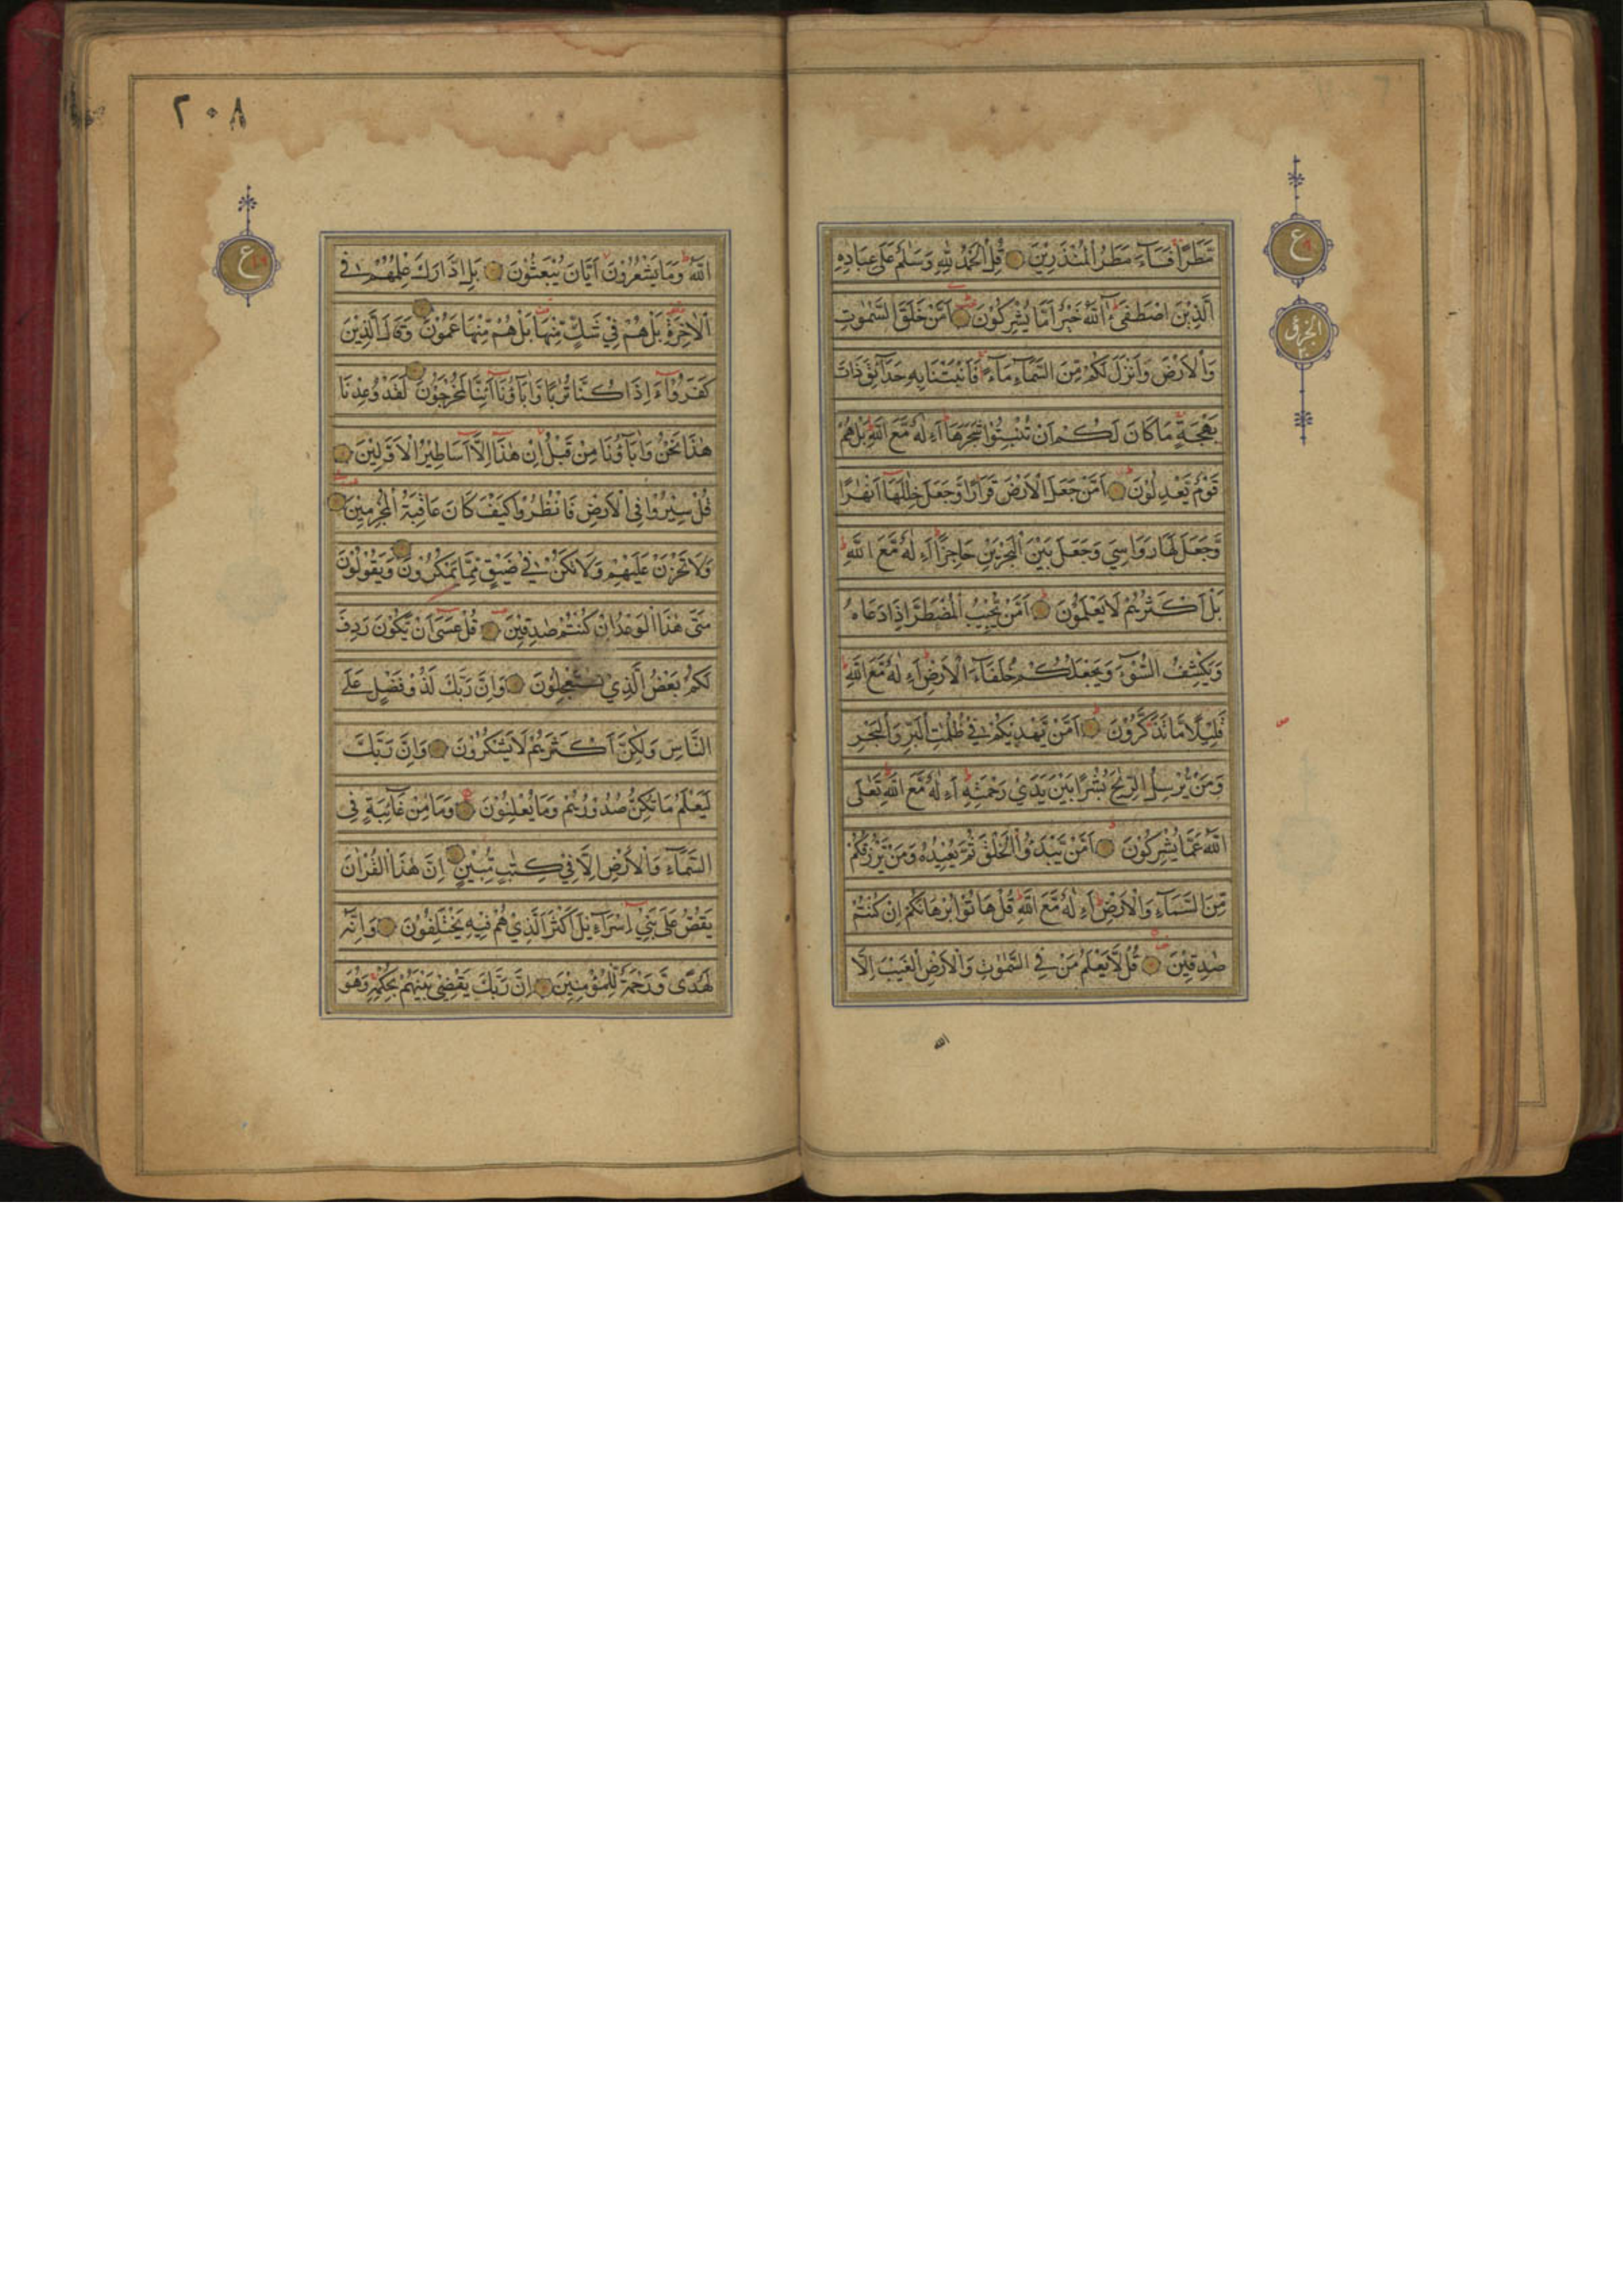 مَّطَرًا فَسَآءَ مَطَرُ الْمُنْذَرِيْنَ قُلِ الْحَمْدُ لِلّٰهِ وَسَلٰمٌ عَلٰى عِبَادِهِ
الَّذِيْنَ اصْطَفٰىۗ ءٰۤاللّٰهُ خَيْرٌ اَمَّا يُشْرِكُوْنَ اَمَّنْ خَلَقَ السَّمٰوٰتِ
وَالْاَرْضَ وَاَنْزَلَ لَكُمْ مِّنَ السَّمَآءِ مَآءً فَاَنْبَتْنَا بِهٖ حَدَآئِقَ ذَاتَ
بَهْجَةٍ مَا كَانَ لَكُمْ اَنْ تُنْبِتُوْا شَجَرَهَا ءَاِلٰهٌ مَّعَ اللّٰهِ بَلْ هُمْ
قَوْمٌ يَّعْدِلُوْنَ اَمَّنْ جَعَلَ الْاَرْضَ قَرَارًا وَّجَعَلَ خِلٰلَهَا اَنْهٰرًا
وَّجَعَلَ لَهَا رَوَاسِيَ وَجَعَلَ بَيْنَ الْبَحْرَيْنِ حَاجِزًا ءَاِلٰهٌ مَّعَ اللّٰهِ
بَلْ اَكْثَرُهُمْ لَا يَعْلَمُوْنَ اَمَّنْ يُّجِيْبُ الْمُضْطَرَّ اِذَا دَعَاهُ
وَيَكْشِفُ السُّوْٓءَ وَيَجْعَلُكُمْ خُلَفَآءَ الْاَرْضِ ءَاِلٰهٌ مَّعَ اللّٰهِ
قَلِيْلًا مَّا تَذَكَّرُوْنَ اَمَّنْ يَّهْدِيْكُمْ فِيْ ظُلُمٰتِ الْبَرِّ وَالْبَحْرِ
وَمَنْ يُّرْسِلُ الرِّيٰحَ بُشْرًا بَيْنَ يَدَيْ رَحْمَتِهٖ ءَاِلٰهٌ مَّعَ اللّٰهِ تَعٰلَى
اللّٰهُ عَمَّا يُشْرِكُوْنَ اَمَّنْ يَّبْدَؤُا الْخَلْقَ ثُمَّ يُعِيْدُهٗ وَمَنْ يَّرْزُقُكُمْ
مِّنَ السَّمَآءِ وَالْاَرْضِ ءَاِلٰهٌ مَّعَ اللّٰهِ قُلْ هَاتُوْا بُرْهَانَكُمْ اِنْ كُنْتُمْ
صٰدِقِيْنَ قُلْ لَّا يَعْلَمُ مَنْ فِي السَّمٰوٰتِ وَالْاَرْضِ الْغَيْبَ اِلَّا
اللّٰه
ع
الجزؤ
٢٠
٢٠٨
ع
اللّٰهُ وَمَا يَشْعُرُوْنَ اَيَّانَ يُبْعَثُوْنَ بَلِ ادّٰارَكَ عِلْمُهُمْ فِي
الْاٰخِرَةِ بَلْ هُمْ فِيْ شَكٍّ مِّنْهَا بَلْ هُمْ مِّنْهَا عَمُوْنَ وَقَالَ الَّذِيْنَ
كَفَرُوْا ءَاِذَا كُنَّا تُرٰبًا وَّاٰبَآؤُنَا اَئِنَّا لَمُخْرَجُوْنَ لَقَدْ وُعِدْنَا
هٰذَا نَحْنُ وَاٰبَآؤُنَا مِنْ قَبْلُ اِنْ هٰذَا اِلَّا اَسَاطِيْرُ الْاَوَّلِيْنَ
قُلْ سِيْرُوْا فِي الْاَرْضِ فَانْظُرُوْا كَيْفَ كَانَ عَاقِبَةُ الْمُجْرِمِيْنَ
وَلَا تَحْزَنْ عَلَيْهِمْ وَلَا تَكُنْ فِيْ ضَيْقٍ مِّمَّا يَمْكُرُوْنَ وَيَقُوْلُوْنَ
مَتٰى هٰذَا الْوَعْدُ اِنْ كُنْتُمْ صٰدِقِيْنَ قُلْ عَسٰى اَنْ يَّكُوْنَ رَدِفَ
لَكُمْ بَعْضُ الَّذِيْ تَسْتَعْجِلُوْنَ وَاِنَّ رَبَّكَ لَذُوْ فَضْلٍ عَلَى
النَّاسِ وَلٰكِنَّ اَكْثَرَهُمْ لَا يَشْكُرُوْنَ وَاِنَّ رَبَّكَ
لَيَعْلَمُ مَا تُكِنُّ صُدُوْرُهُمْ وَمَا يُعْلِنُوْنَ وَمَا مِنْ غَآئِبَةٍ فِي
السَّمَآءِ وَالْاَرْضِ اِلَّا فِيْ كِتٰبٍ مُّبِيْنٍ اِنَّ هٰذَا الْقُرْاٰنَ
يَقُصُّ عَلٰى بَنِيْ اِسْرَآءِيْلَ اَكْثَرَ الَّذِيْ هُمْ فِيْهِ يَخْتَلِفُوْنَ وَاِنَّهٗ
لَهُدًى وَّرَحْمَةٌ لِّلْمُؤْمِنِيْنَ اِنَّ رَبَّكَ يَقْضِيْ بَيْنَهُمْ بِحُكْمِهٖ وَهُوَ